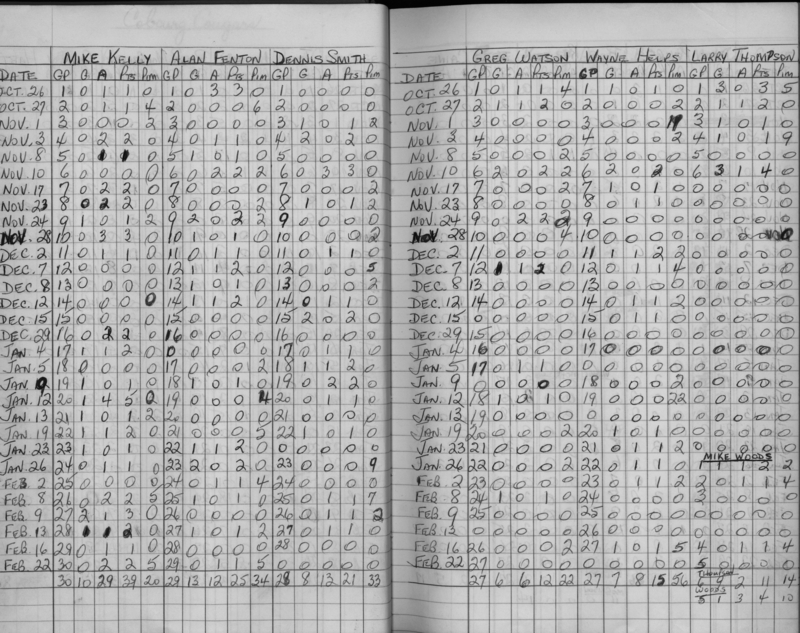 MIKE KELLY ALAN FENTON DENNIS SMITH
DATE GP G A Pts Pim GP G A Pts Pim GP G A Pts. Pim
OCT. 26 1 0 1 1 0 1 0 3 3 0 1 0 0 0 0
OCT. 27 2 0 1 1 4 2 0 0 0 6 2 0 0 0 0
NOV. 1 3 0 0 0 2 3 0 0 0 0 3 1 0 1 2
NOV. 3 4 0 2 2 0 4 0 1 1 0 4 2 0 2 0
NOV. 8 5 0 1 1 0 5 1 0 1 0 5 0 0 0 0
NOV. 10 6 0 0 0 0 6 0 2 2 2 6 0 3 3 0
NOV. 17 7 0 2 2 0 7 0 0 0 0 7 0 0 0 2
NOV. 23 8 0 2 2 0 8 0 0 0 2 8 1 0 1 2
NOV. 24 9 1 0 1 2 9 2 0 2 2 9 0 0 0 0
NOV. 28 10 0 3 3 0 10 1 0 1 0 10 0 0 0 2
DEC. 2 11 0 1 1 0 11 0 1 1 0 11 0 1 1 0
DEC. 7 12 0 0 0 0 12 1 1 2 0 12 0 0 0 5
DEC. 8 13 0 0 0 0 13 1 0 1 0 13 0 0 0 2
DEC. 12 14 0 0 0 0 14 1 1 2 0 14 0 1 1 0
DEC. 15 15 0 0 0 0 15 0 0 0 0 15 2 0 2 0
DEC. 29 16 0 2 2 0 16 0 0 0 0 16 0 0 0 0
JAN. 4 17 1 1 2 0 0 0 0 0 0 17 0 1 1 0
JAN. 5 18 0 0 0 0 17 0 0 0 2 18 1 1 2 0
JAN 9 19 1 0 1 0 18 1 0 1 0 19 0 2 2 0
JAN. 12 20 1 4 5 0 19 0 0 0 4 20 0 1 1 0
JAN. 13 21 1 0 1 2 20 0 0 0 0 21 0 0 0 0
JAN. 19 22 1 1 2 0 21 0 0 0 5 22 1 0 1 0
JAN 23 23 1 0 1 0 22 1 1 2 0 0 0 0 0 0
JAN. 26 24 0 1 1 0 23 2 0 2 0 23 0 0 0 9
FEB. 2 25 0 0 0 0 24 0 1 1 4 24 0 0 0 0
FEB. 8 26 0 2 2 5 25 1 0 1 0 25 0 1 1 7
FEB. 9 27 2 1 3 0 26 0 0 0 0 26 0 1 1 2
FEB. 13 28 1 1 2 0 27 1 0 1 2 27 0 1 1 0
FEB. 16 29 0 1 1 0 28 0 0 0 0 28 0 0 0 0
FEB. 22 30 0 2 2 5 29 0 1 1 5 0 0 0 0 0
30 10 29 39 20 29 13 12 25 34 28 8 13 21 33
GREG WATSON WAYNE HELPS LARRY THOMPSON
DATE GP G A Pts Pim GP G A Pts Pim GP G A Pts. Pim
OCT. 26 1 0 1 1 4 1 1 0 1 0 1 3 0 3 5
OCT. 27 2 1 1 2 0 2 0 0 0 2 2 1 1 2 0
NOV. 1 3 0 0 0 0 3 0 0 0 3 1 0 1 0
NOV. 3 4 0 0 0 0 4 0 0 0 2 4 1 0 1 9
NOV. 8 5 0 0 0 2 5 0 0 0 0 5 0 0 0 0
NOV. 10 6 2 0 2 2 6 2 0 2 0 6 3 1 4 0
NOV. 17 7 0 0 0 2 7 1 0 1 0 0 0 0 0 0
NOV. 23 8 0 0 0 0 8 0 1 1 0 0 0 0 0 0
NOV. 24 9 0 2 2 2 9 0 0 0 0 0 0 0 0 0
NOV. 28 10 0 0 0 4 10 0 0 0 0 0 0 0
DEC. 2 11 0 0 0 0 11 1 1 2 2 0 0 0 0 0
DEC. 7 12 1 1 2 0 12 0 1 1 4 0 0 0 0 0
DEC. 8 13 0 0 0 0 13 0 0 0 0 0 0 0 0 0
DEC. 12 14 0 0 0 0 14 0 1 1 2 0 0 0 0 0
DEC. 15 0 0 0 0 0 15 0 1 1 0 0 0 0 0 0
DEC. 29 15 0 0 0 0 16 0 0 0 0 0 0 0 0 0
JAN. 4 16 0 0 0 0 17 0 0 0 0 0 0 0 0 0
JAN. 5 17 0 1 1 0 0 0 0 0 0 0 0 0 0 0
JAN. 9 0 0 0 0 0 18 0 0 0 2 0 0 0 0 0
JAN. 12 18 1 0 1 0 19 0 0 0 22 0 0 0 0 0
JAN. 13 19 0 0 0 0 0 0 0 0 0 0 0 0 0 0
JAN. 19 20 0 0 0 2 20 1 0 1 0 0 0 0 0 0
JAN. 23 21 0 0 0 0 21 0 1 1 2
MIKE WOODS
JAN. 26 22 0 0 0 2 22 0 1 1 0 1 1 1 2 2
FEB 2 23 0 0 0 0 23 0 1 1 2 2 0 1 1 4
FEB. 8 24 1 0 1 0 24 0 0 0 0 3 0 0 0 0
FEB. 9 25 0 0 0 0 25 0 0 0 0 0 0 0 0 0
FEB. 13 0 0 0 0 0 26 0 0 0 0 0 0 0 0 0
FEB. 16 26 0 0 0 2 27 1 0 1 5 4 0 1 1 4
FEB. 22 27 0 0 0 0 0 0 0 0 0 5 0 0 0 0
Thompson
27 6 6 12 22 27 7 8 15 56 6 9 2 11 14
WOODS
5 1 3 4 10